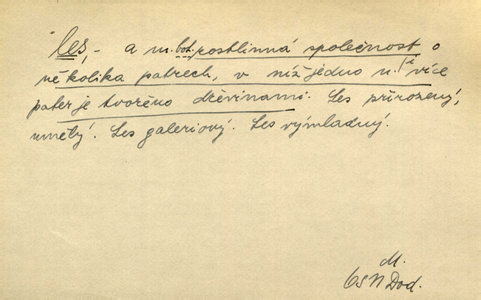 les, - a m. bot. rostlinná společnost o
několika patrech, v níž jedno n. více
pater je tvořeno dřevinami. Les přirozený,
umělý. Les galeriový. Les výmladný.
M.
OSN Dod.